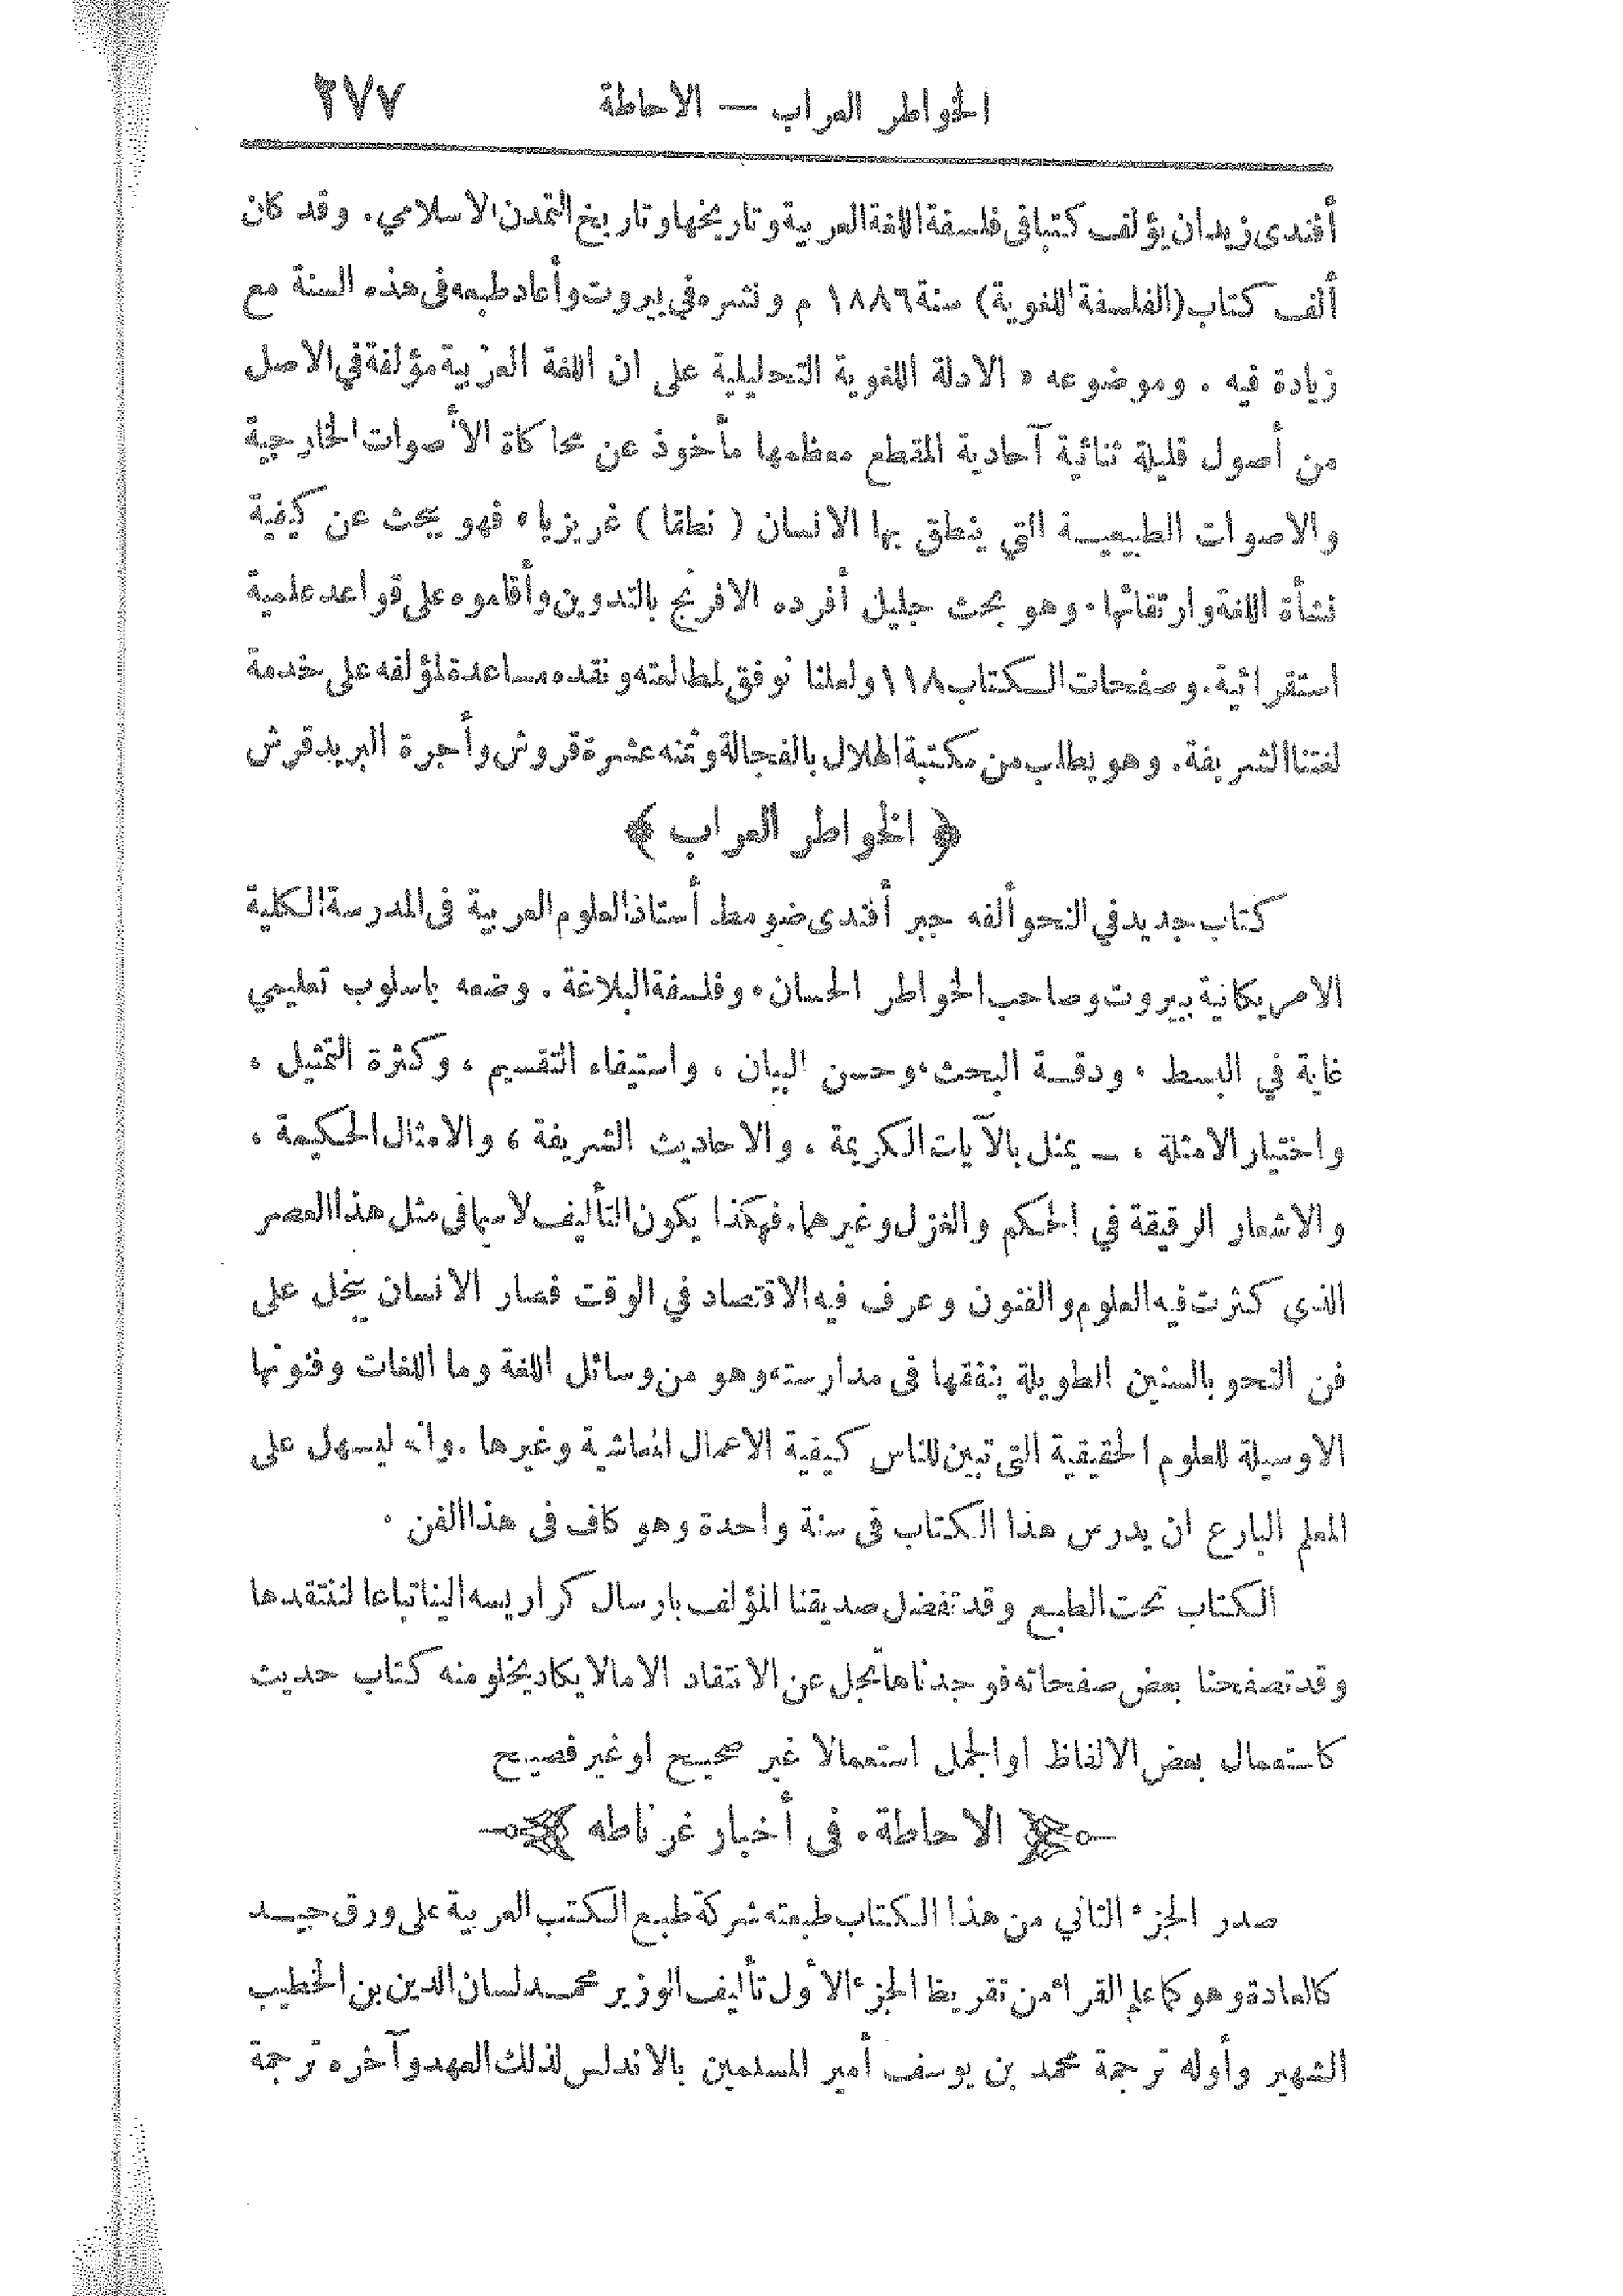 الخواطر العراب — الاحاطة ٢٧٧
أفندى زيدان يؤلف كتبا في فلسفة اللغة العربية وتاريخها وتاريخ التمدن الاسلامي. وقد كان
ألف كتاب (الفلسفة اللغوية) سنة ١٨٨٦ م ونشره في بيروت وأعاد طبعه في هذه السنة مع
زيادة فيه . وموضوعه « الادلة اللغوية التحليلية على ان اللغة العربية مؤلفة في الاصل
من أصول قليلة ثنائية آحادية المقطع معظمها مأخوذ عن محاكاة الأصوات الخارجية
والاصوات الطبيعيـة التي ينطق بها الانسان ( نطقا ) غريزيا » فهو يبحث عن كيفية
نشأة اللغة وارتقائها. وهو بحث جليل أفرده الافرنج بالتدوين وأقاموه على قواعد علمية
استقرائية. وصفحات الـكتاب ١١٨ ولعلنا نوفق لمطالعته ونقده مساعدة لمؤلفه على خدمة
لغتنا الشريفة. وهو يطلب من مكتبة الهلال بالفجالة وثمنه عشرة قروش وأجرة البريد قرش
﴿ الخواطر العراب ﴾
كتاب جديد في النحو ألفه جبر أفندى ضومط أستاذ العلوم العربية فى المدرسة الكلية
الامريكانية ببيروت وصاحب الخواطر الحسان، وفلسفة البلاغة . وضعه باسلوب تعليمي
غاية في البسط ، ودقـة البحث، وحسن البيان ، واستيفاء التقسيم ، وكثرة التمثيل ،
واختيار الامثلة ، ـ يمثل بالآيات الكريمة ، والاحاديث الشريفة ، والامثال الحكيمة ،
والاشعار الرقيقة في الحكم والغزل وغيرها. فهكذا يكون التأليف لاسيما فى مثل هذا العصر
الذي كثرت فيه العلوم والفنون وعرف فيه الاقتصاد في الوقت فصار الانسان يبخل على
فن النحو بالسنين الطويلة ينفقها فى مدارسته وهو من وسائل اللغة وما اللغات وفنونها
الا وسيلة للعلوم الحقيقية التى تبين للناس كيفية الاعمال المعاشية وغيرها . وانه ليسهل على
المعلم البارع ان يدرس هذا الكتاب فى سنة واحدة وهو كاف فى هذا الفن .
الكتاب تحت الطبع وقد تفضل صديقنا المؤلف بارسال كراريسه الينا تباعا لننتقدها
وقد تصفحنا بعض صفحاته فوجدناها تجل عن الانتقاد الا ما لا يكاد يخلو منه كتاب حديث
كاستعمال بعض الالفاظ او الجمل استعمالا غير صحيح او غير فصيح
﴿ الاحاطة . فى أخبار غرناطه ﴾
صدر الجزء الثاني من هذا الكتاب طبعته شركة طبع الكتب العربية على ورق جيـد
كالعادة وهو كما علم القراء من تقريظ الجزء الأول تأليف الوزير محمـد لسان الدين بن الخطيب
الشهير وأوله ترجمة محمد بن يوسف أمير المسلمين بالاندلس لذلك العهد وآخره ترجمة